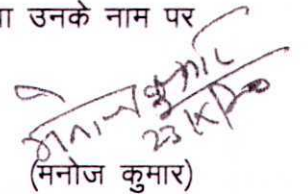 उनके नाम पर
मनोज कुमार
(मनोज कुमार)